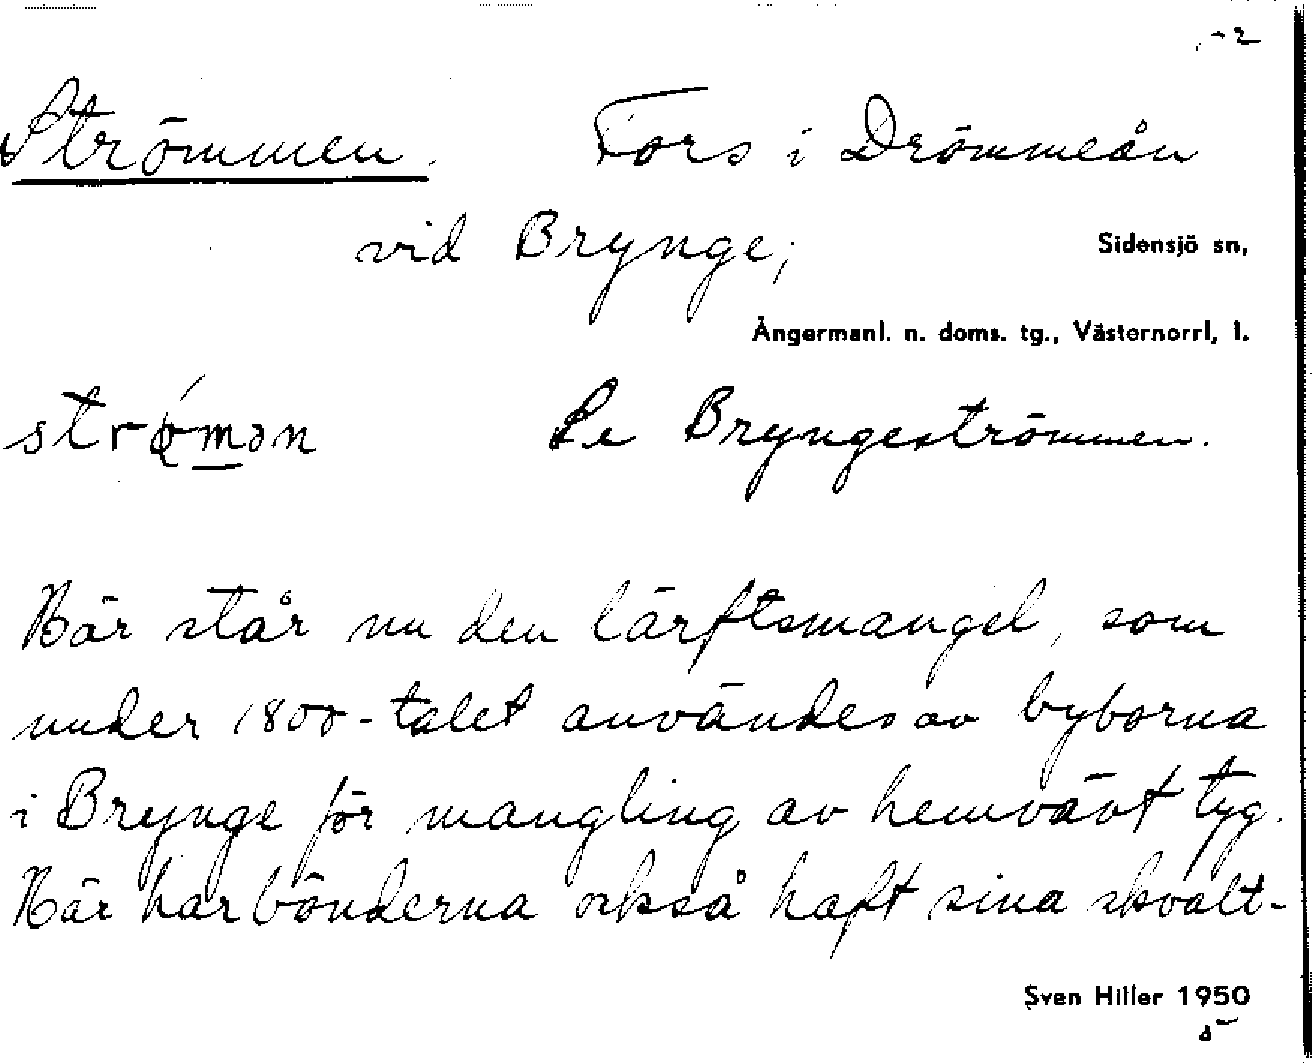 Strömmen. Fors i Drömmeån
vid Brynge; Sidensjö sn,
Ångermanl. n. doms. tg., Västernorrl, l.
Se Bryngeströmmen.
Här står nu den lärftsmangel, som
under 1800-talet användes av byborna
i Brynge för mangling av hemvävt tyg.
Här har bönderna också haft sina skvalt-
Sven Hiller 1950